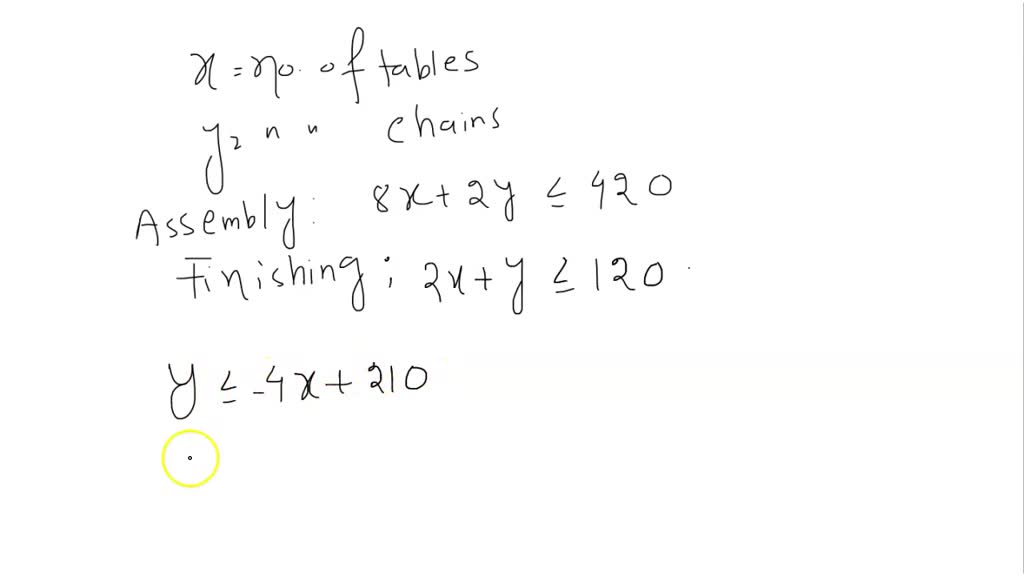 x = no. of tables
y = " " chains
Assembly: 8x + 2y ≤ 420
Finishing; 2x + y ≤ 120
y ≤ -4x + 210